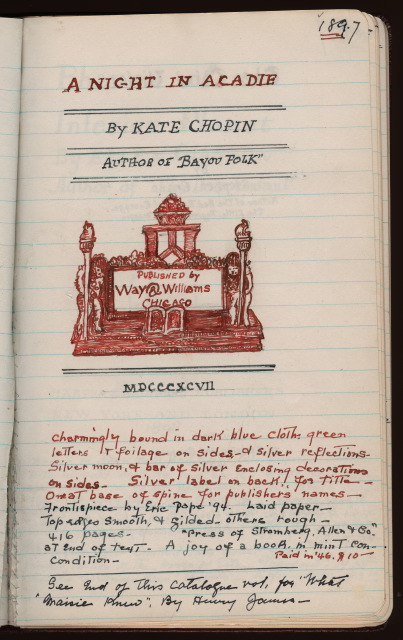 1897-
A NIGHT IN ACADIE
By KATE CHOPIN
AUTHOR OF "BAYOU FOLK"
PUBLISHED by
Way & Williams
CHICAGO
MDCCCXCVII
Charmingly bound in dark blue cloth: green
letters & foilage on sides & silver reflections-
Silver moon, & bar of silver enclosing decorations
on sides- Silver label on back, for title-
One at base of spine for publishers names-
Frontispiece by Eric Pape '94- Laid paper-
Top edges smooth, & gilded- others rough-
416 pages- "Press of Stromberg, Allen & Co."
at end of text- A joy of a book, in mint con-
condition- Paid in '46, $10-
See end of this catalogue vol. for "What
"Maisie Knew". By Henry James-